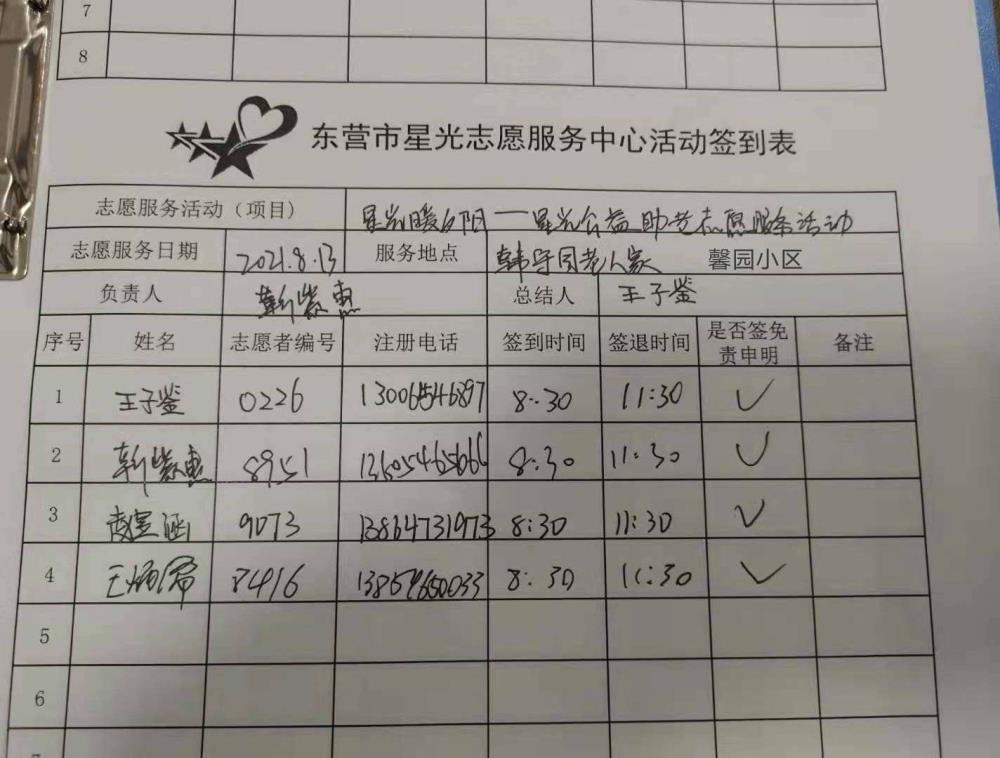 7
8
东营市星光志愿服务中心活动签到表
志愿服务活动（项目） 星光暖夕阳——星光公益助老志愿服务活动
志愿服务日期 2021.8.13 服务地点 韩守同老人家 馨园小区
负责人 靳紫惠 总结人 王子鉴
序号 姓名 志愿者编号 注册电话 签到时间 签退时间 是否签免责申明 备注
1 王子鉴 0226 13006546897 8:30 11:30 ✓
2 靳紫惠 8951 8:30 11:30 ✓
3 9073 13864731973 8:30 11:30 ✓
4 8416 8:30 11:30 ✓
5
6